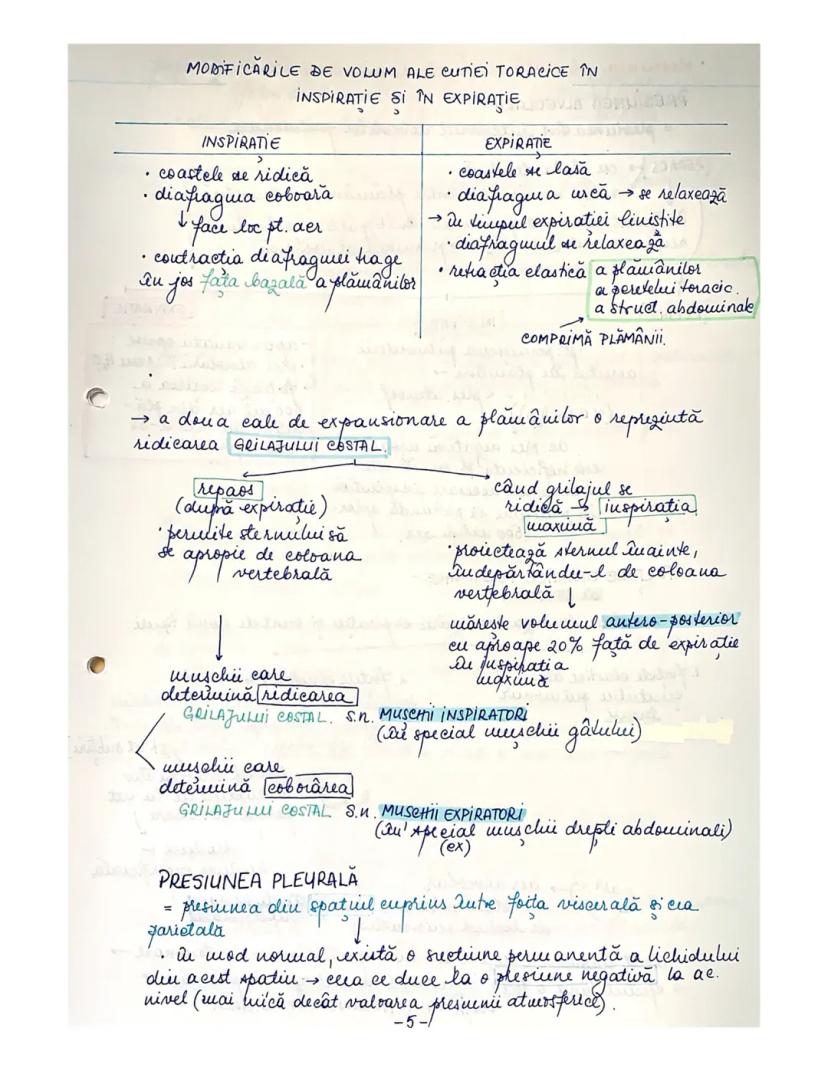 MODIFICĂRILE DE VOLUM ALE CUTIEI TORACICE ÎN
INSPIRAȚIE ȘI ÎN EXPIRAȚIE
INSPIRAȚIE
• coastele se ridică
• diafragma coboară
↓ face loc pt. aer
• contracția diafragmei trage
în jos fața bazală a plămânilor
EXPIRAȚIE
• coastele se lasă
• diafragma urcă → se relaxează
→ În timpul expirației liniștite
• diafragmul se relaxează
• retracția elastică a plămânilor
a peretelui toracic.
a struct. abdominale
COMPRIMĂ PLĂMÂNII.
→ a doua cale de expansionare a plămânilor o reprezintă
ridicarea GRILAJULUI COSTAL.
repaos
(după expirație)
• permite sternului să
se apropie de coloana
vertebrală
când grilajul se
ridică → inspirația
maximă
• proiectează sternul înainte,
îndepărtându-l de coloana
vertebrală ↓
mărește volumul antero-posterior
cu aproape 20% față de expirație
în inspirația
maximă
mușchii care
determină ridicarea
GRILAJULUI COSTAL. s.n. MUȘCHII INSPIRATORI
(în special mușchii gâtului)
mușchii care
determină coborârea
GRILAJULUI COSTAL s.n. MUSCHII EXPIRATORI
(în special mușchii drepți abdominali)
(ex)
PRESIUNEA PLEURALĂ
= presiunea din spațiul cuprins între foița viscerală și cea
parietală
• În mod normal, există o suctiune permanentă a lichidului
din acest spatiu → ceea ce duce la o presiune negativă la ac.
nivel (mai mică decât valoarea presiunii atmosferice).
-5-